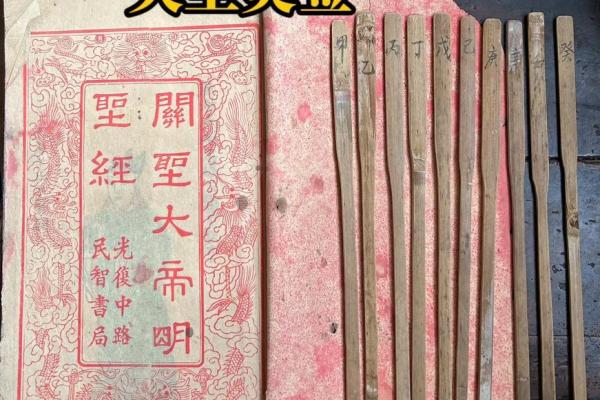 關聖大帝明
聖經
光復中路
民智書局
甲
乙
丙
丁
戊
己
庚
辛
癸